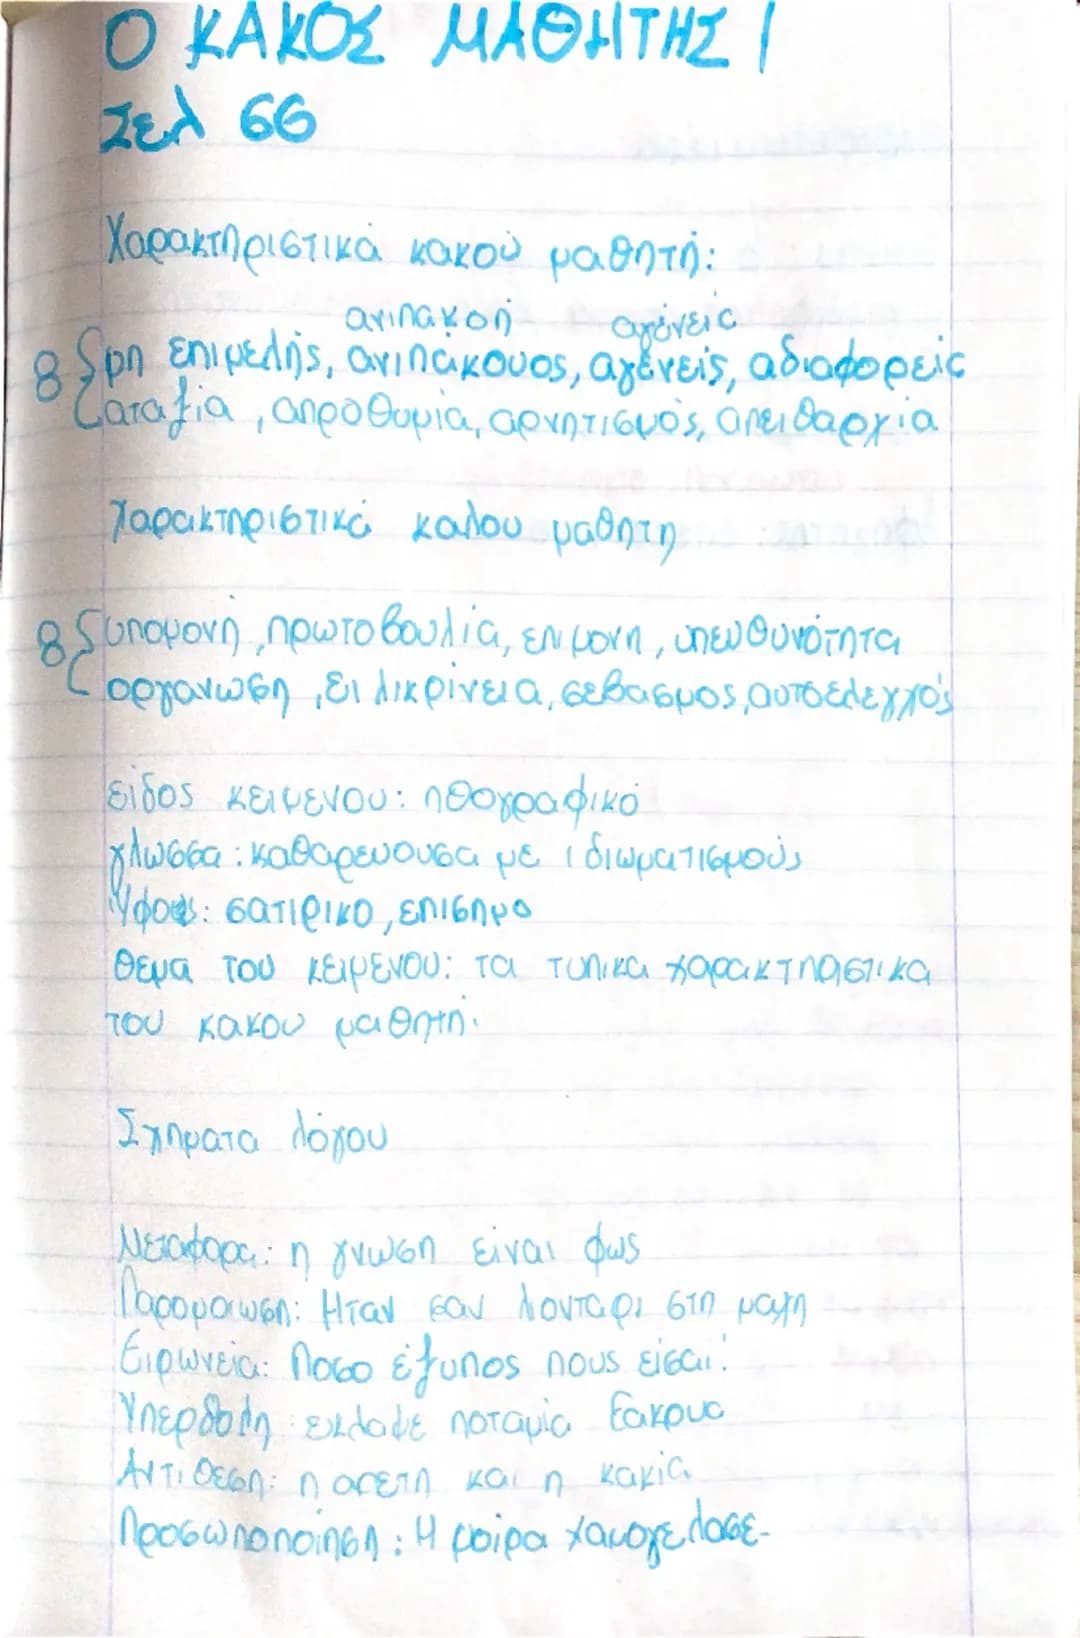 Ο ΚΑΚΟΣ ΜΑΘΗΤΗΣ /
Σελ 66
Χαρακτηριστικά κακού μαθητή:
ανιπακοή αγένεις
8 { μη επιμελής, ανιπάκουος, αγένεις, αδιαφορείς
αταξία, απροθυμία, αρνητισμός, απειθαρχία
Χαρακτηριστικά καλου μαθητη
8 { υπομονή, πρωτοβουλία, επιμονη, υπευθυνότητα
οργανωση, ειλικρίνεια, σεβασμος, αυτοελεγχός
είδος κειμενου: ηθογραφικό
γλωσσα: καθαρευουσα με ιδιωματισμούς
Ύφος: σατιρικο, επισημο
Θεμα του κειμενου: τα τυπικα χαρακτηριστικα
του κακου μαθητη.
Σχηματα λόγου
Μεταφορα: η γνωση είναι φως
Παρομοιωση: Ηταν σαν λιονταρι στη μαχη
Ειρωνεία: Ποσο έξυπνος πους είσαι!
Υπερβολη: εκλαψε ποταμία δακρυα
Αντιθεση: η αρετη και η κακία
Προσωποποίηση: Η μοίρα χαμογελασε-